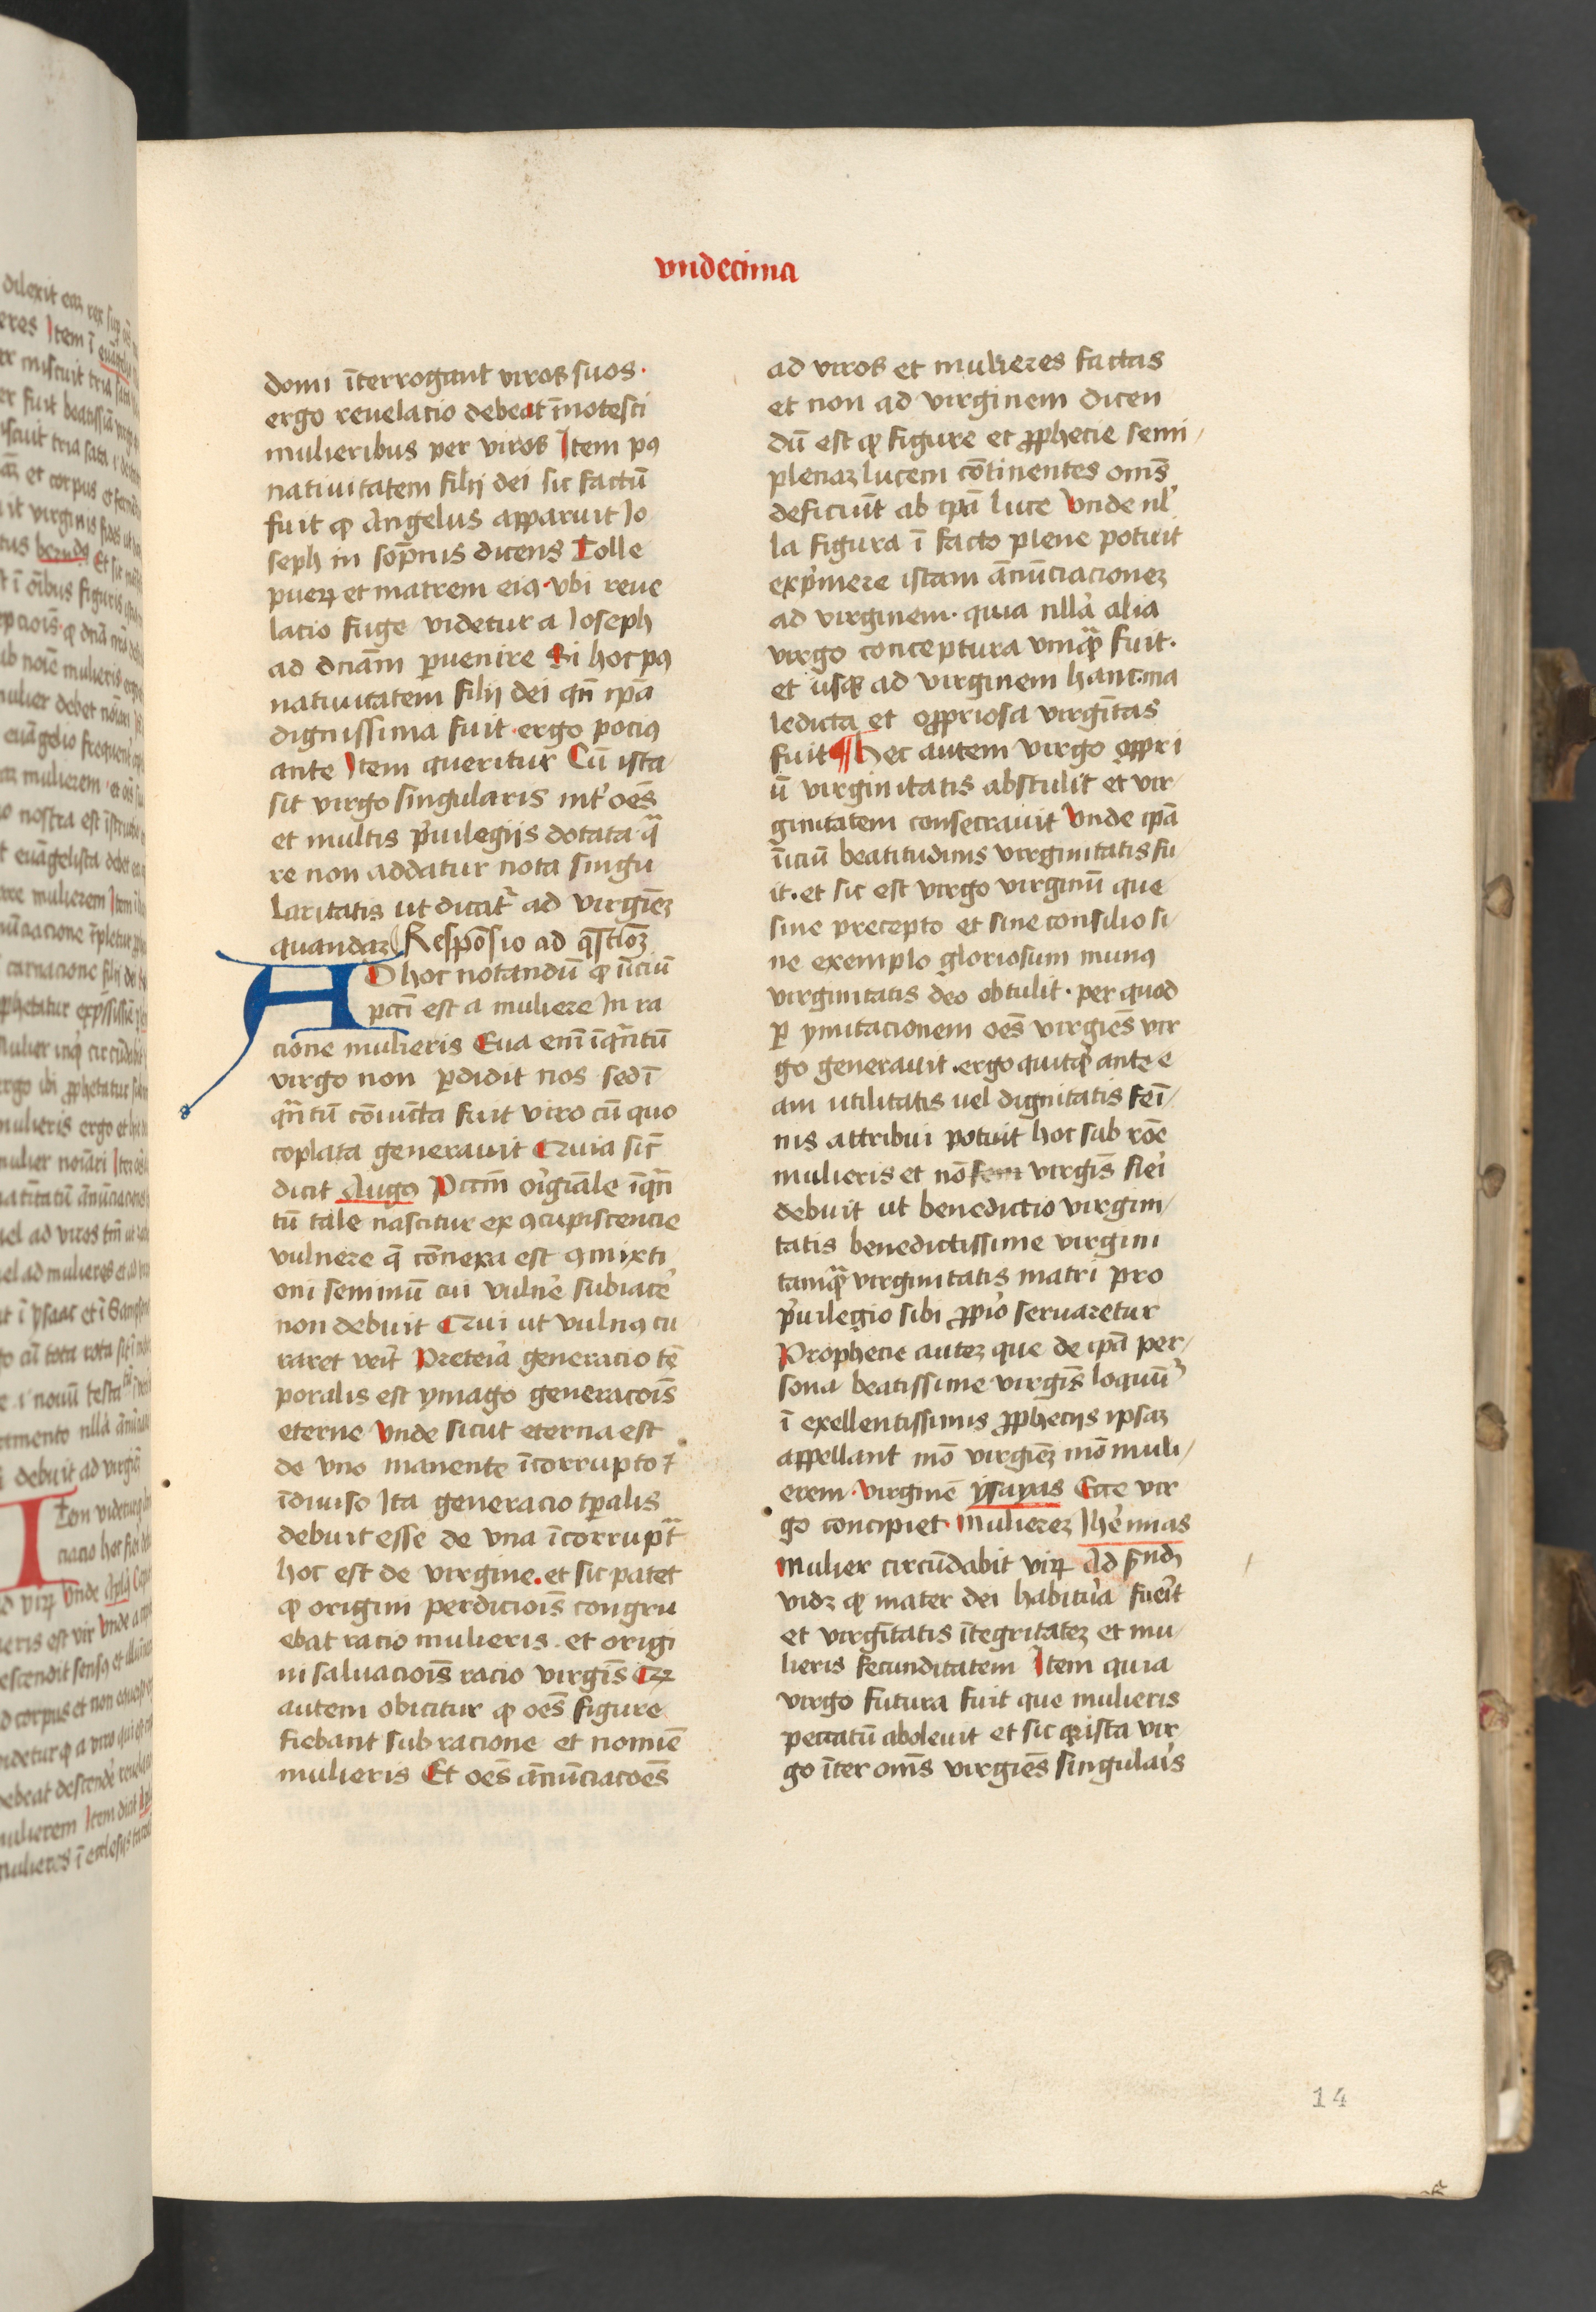 vndecima
domi īterrogant viros suos·
ergo reuelacio debeat īnotesci
mulieribus per viros Item pꝯ
natiuitatem filij dei sic factū
fuit ꝙ Angelus apparuit Io
seph in sop̄nis dicens Tolle
pueꝝ et matrem eiꝯ·vbi reue
lacio fuge videtur a Ioseph
ad dn̄am ꝑuenire Si hoc pꝯ
natiuitatem filij dei qn̄ ip̄a
dignissima fuit·ergo pociꝯ
ante Item queritur Cū ista
sit virgo singularis int' oēs
et multis p'uilegijs dotata·qᵃ
re non addatur nota singu
laritatis ut dicat᷑ ad virgīeꝫ
quandaꝫ Respōsio ad q̄stioꝫ
AD hoc notandū ꝙ īiciū
pcc̄i est a muliere In ra
cione mulieris Eua enī īqᵃntū
virgo non ꝑdidit nos sed ī
qᵃntū cōiūcta fuit viro cū quo
coplata generauit Quia sic̄
dicit Augꝯ Pccm̄ or'giāle īqᵃn
tū tale nascitur ex ꝯcupiscencie
vulnere q̄ cōnexa est ꝯmixti
oni seminū cui vuln'e subiac'e
non debuit Qui ut vulnꝯ cu
raret veīt Preteria generacio tē
poralis est ymago generacoīs
eterne Vnde sicut eterna est
de vno manente īcorrupto ⁊
īdiuiso Ita generacio tꝑalis
debuit esse de vna īcorruptᵃ
hoc est de virgine·et sic patet
ꝙ origini perdicioīs congru
ebat racio mulieris·et origi
ni saluacioīs racio virgīs Qꝛ
autem obicitur ꝙ oēs figure
fiebant sub racione et nomīe
mulieris Et oēs ānūciacoēs
ad viros et mulieres factas
et non ad virginem dicen
dū est ꝙ figure et ꝓphecie semi/
plenaꝫ lucem cōtinentes om̄s
deficiūt ab ip̄a luce Vnde nl'
la figura ī facto plene potuit
exp'mere istam ānūciacioneꝫ
ad virginem·quia nlla' alia
virgo conceptura vnqᵃ fuit·
et usqꝫ ad virginem hanc·ma
ledicta et opp̄riosa virgītas
fuit ¶ Hec autem virgo opp̄ri
ū virginitatis abstulit et vir/
ginitatem consecrauit Vnde ip̄a
īiciū beatitudinis virginitatis fu
it·et sic est virgo virginū que
sine precepto et sine consilio si/
ne exemplo gloriosum munꝯ
virginitatis deo obtulit·per quod
ꝑ ymitacionem oēs virgiēs vir
go generauit·ergo quitq'd ante e
am utilitatis uel dignitatis feī/
nis attribui potuit hoc sub rōe
mulieris et nō virgīs fie'i
debuit ut benedictio virgini/
tatis benedictissime virgini
tamqᵃ virginitatis matri pro
p'uilegio sibi ꝓpio' seruaretur
Prophecie auteꝫ que de ip̄a per/
sona beatissime virgīs loquūt᷑
ī exellentissimis ꝓphecijs ipsaꝫ
appellant mō virgīeꝫ mō muli/
erem·virginē Ysayas Ecce vir
go concipiet·Muliereꝫ Ihe'mias
Mulier circūdabit viꝝ Ad s̄ndꝫ
vidꝫ ꝙ mater dei habitu'a fue'it
et virgītatis ītegritateꝫ et mu
lieris fecunditatem Item quia
virgo futura fuit que mulieris
peccatū aboleuit et sic qꝛ ista vir
go īter om̄s virgiēs singulais
14